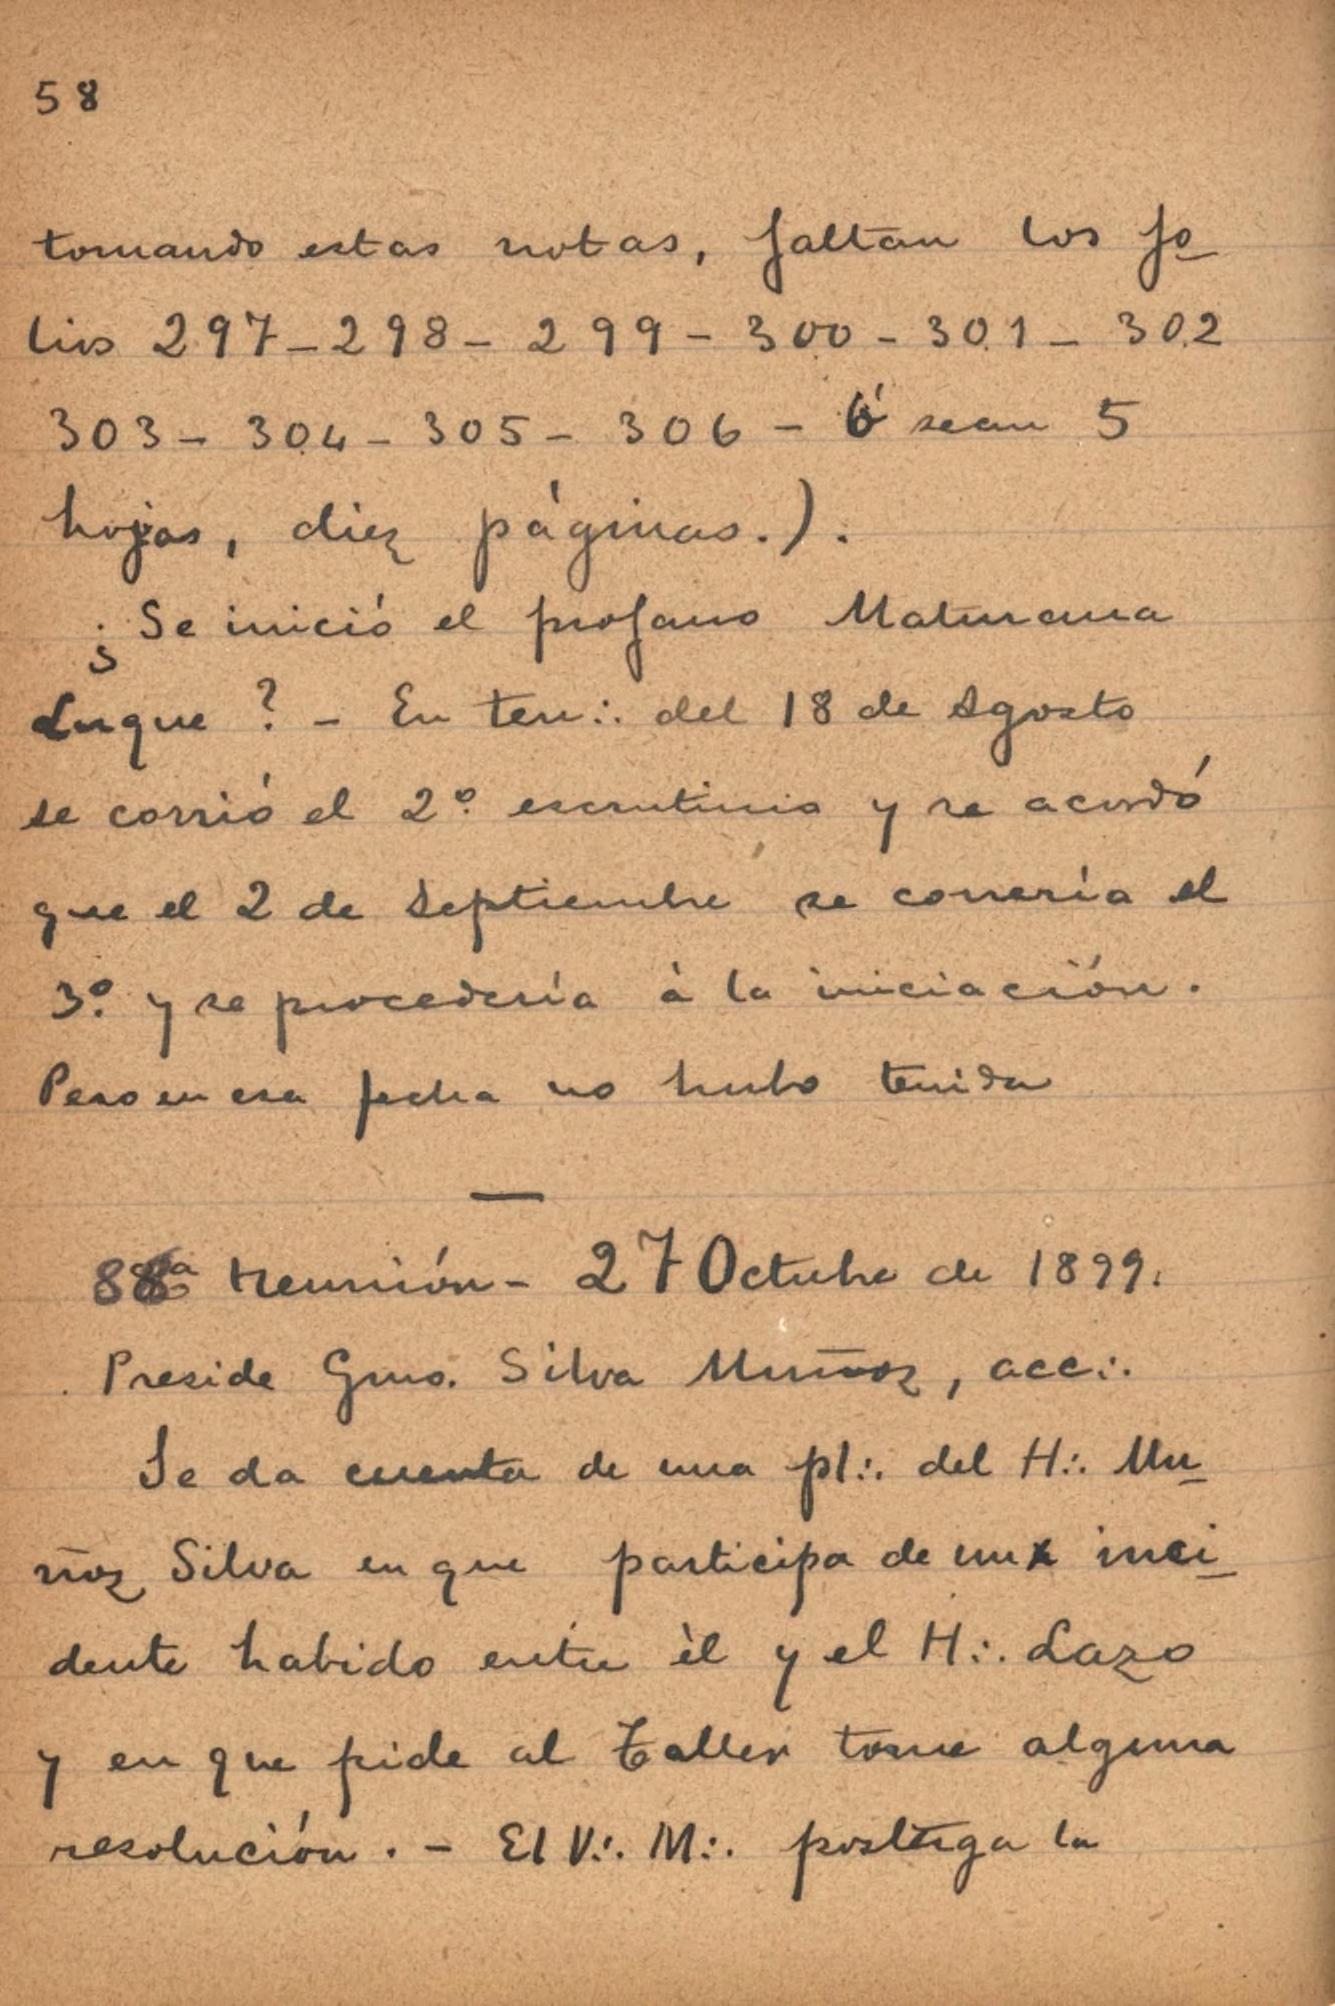 58
tomando estas notas, faltan los fo-
lios 297-298-299-300-301-302
303-304-305-306-ó sean 5
hojas, diez páginas.).
¿Se inició el profano Maturana
Luque?- En ten∴ del 18 de Agosto
se corrió el 2º escrutinio y se acordó
que el 2 de Septiembre se correría el
3º y se procedería à la iniciación.
Pero en esa fecha no hubo tenida
—
88ª reunión- 27 Octubre de 1899.
Preside Gmo. Silva Muñoz, acc∴
Se da cuenta de una pl∴ del H∴ Mu-
ñoz Silva en que participa de un inci-
dente habido entre èl y el H∴ Lazo
y en que pide al Taller tome alguna
resolución.- El V∴ M∴ postega la